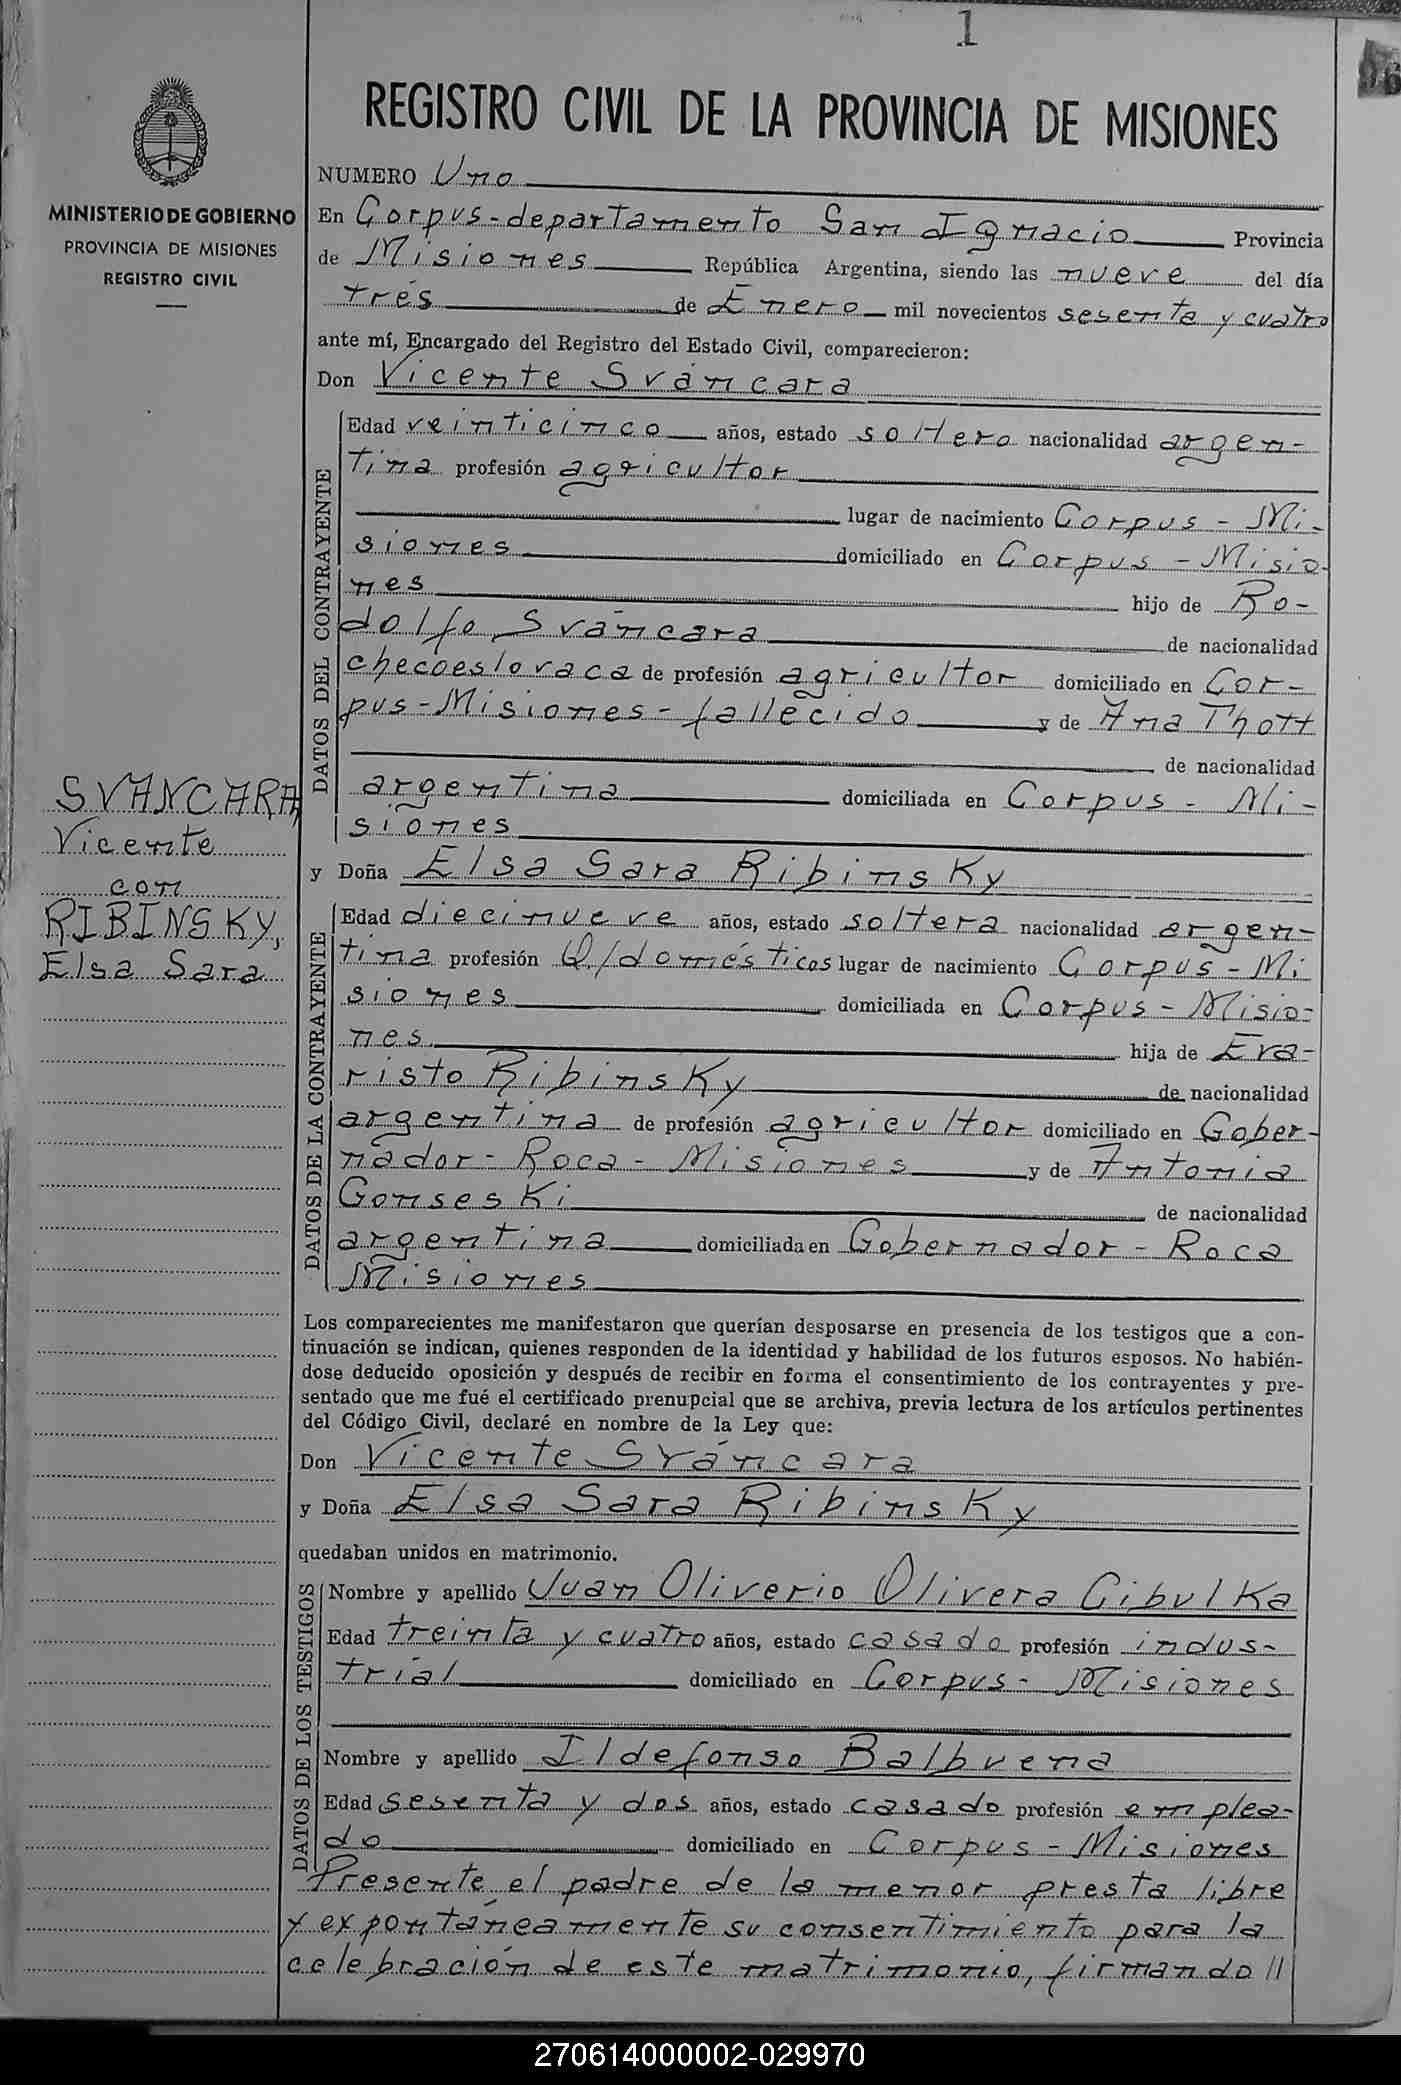 1
REGISTRO CIVIL DE LA PROVINCIA DE MISIONES
MINISTERIO DE GOBIERNO
PROVINCIA DE MISIONES
REGISTRO CIVIL
NUMERO Uno
En Corpus-departamento San Ignacio Provincia
de Misiones República Argentina, siendo las nueve del día
trés de Enero mil novecientos sesenta y cuatro
ante mí, Encargado del Registro del Estado Civil, comparecieron:
Don Vicente Sváncara
DATOS DEL CONTRAYENTE
Edad veinticinco años, estado soltero nacionalidad argen-
tina profesión agricultor
lugar de nacimiento Corpus - Mi-
siones domiciliado en Corpus - Misio-
nes hijo de Ro-
dolfo Sváncara de nacionalidad
checoeslovaca de profesión agricultor domiciliado en Cor-
pus-Misiones-fallecido y de Ana Thott
de nacionalidad
argentina domiciliada en Corpus - Mi-
siones
SVANCARA
Vicente
con
RIBINSKY,
Elsa Sara
y Doña Elsa Sara Ribinsky
DATOS DE LA CONTRAYENTE
Edad diecinueve años, estado soltera nacionalidad argen-
tina profesión Q/domésticos lugar de nacimiento Corpus-Mi
siones domiciliada en Corpus-Misio-
nes hija de Eva-
risto Ribinsky de nacionalidad
argentina de profesión agricultor domiciliado en Gober-
nador - Roca - Misiones y de Antonia
Gonseski de nacionalidad
argentina domiciliada en Gobernador - Roca
Misiones
Los comparecientes me manifestaron que querían desposarse en presencia de los testigos que a con-
tinuación se indican, quienes responden de la identidad y habilidad de los futuros esposos. No habién-
dose deducido oposición y después de recibir en forma el consentimiento de los contrayentes y pre-
sentado que me fué el certificado prenupcial que se archiva, previa lectura de los artículos pertinentes
del Código Civil, declaré en nombre de la Ley que:
Don Vicente Sváncara
y Doña Elsa Sara Ribinsky
quedaban unidos en matrimonio.
DATOS DE LOS TESTIGOS
Nombre y apellido Juan Oliverio Olivera Cibulka
Edad treinta y cuatro años, estado casado profesión indus-
trial domiciliado en Corpus - Misiones
Nombre y apellido Ildefonso Balbuena
Edad sesenta y dos años, estado casado profesión emplea-
do domiciliado en Corpus - Misiones
Presente el padre de la menor presta libre
y expontáneamente su consentimiento para la
celebración de este matrimonio, firmando //
270614000002-029970